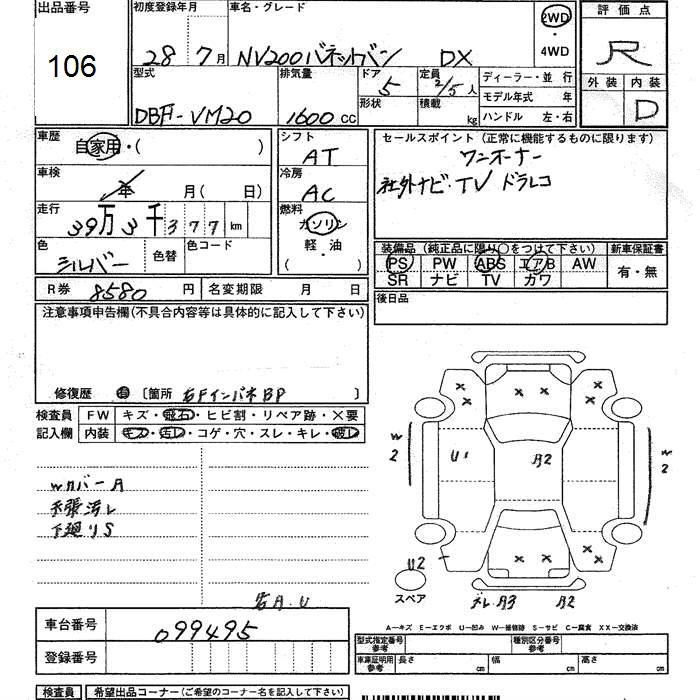 出品番号
106
初度登録年月
28 年 7月
車名・グレード
NV200バネットバン DX
2WD
・
4WD
評価点
R
外装 内装
D
型式
DBF-VM20
排気量
1600 cc
ドア
5
形状
定員
2/5人
積載
kg
ディーラー・並行
モデル年式 年
ハンドル 左・右
車歴
自家用・( )
車検
年 月(日)
走行
39万3千377km
色
シルバー
色替
色コード
シフト
AT
冷房
AC
燃料
ガソリン
軽・油
( )
セールスポイント(正常に機能するものに限ります)
ワンオーナー
社外ナビ・TV ドラレコ
装備品(純正品に限り○をつけて下さい)
PS PW ABS エアB AW
SR ナビ TV カワ
新車保証書
有・無
R券 8580円
名変期限 月 日
後日品
注意事項申告欄(不具合内容等は具体的に記入して下さい)
修復歴 有 〔箇所 右FインパネBP
検査員 FW キズ・飛石・ヒビ割・リペア跡・×要
記入欄 内装 キズ・汚レ・コゲ・穴・スレ・キレ・破レ
Wカバー A
天張汚レ
下廻りS
W2
U1
A2
W2
U2
スペア
A3
A2
A―キズ E―エクボ U―凹み W―補修跡 S―サビ C―腐食 XX―交換済
車台番号
099495
登録番号
型式指定番号
参考
種別区分番号
参考
車庫証明用
参考
長さ cm
幅 cm
高さ cm
検査員
希望出品コーナー(ご希望のコーナー名を記入して下さい)